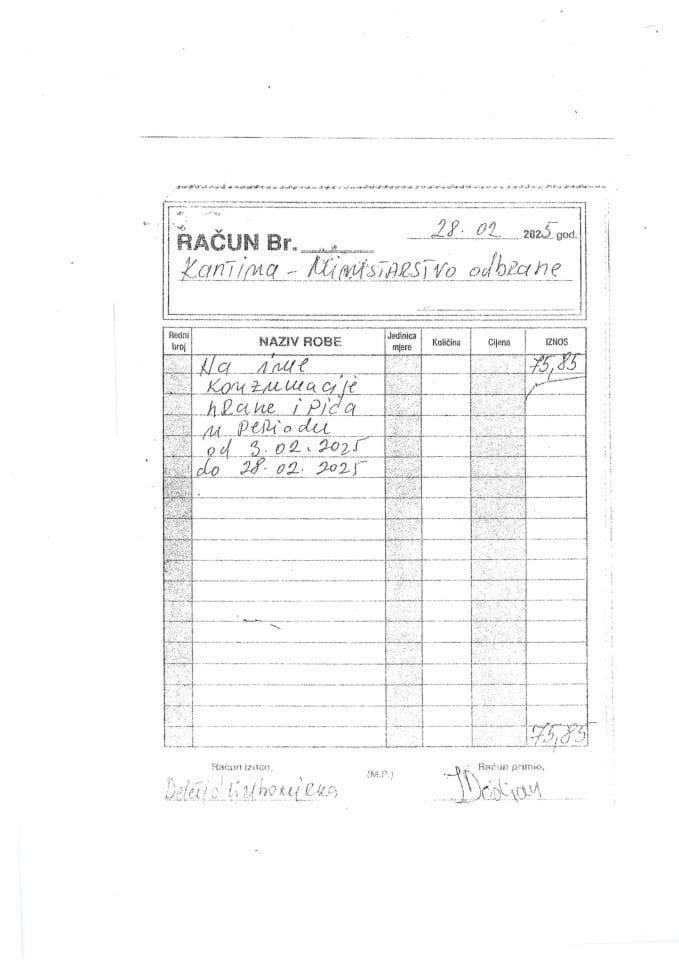 28. 02 2025 god.
RAČUN Br.
Kantina - Ministarstvo odbrane
Redni broj NAZIV ROBE Jedinica mjere Količina Cijena IZNOS
Na ime 75,85
konzumacije
hrane i pića
u periodu
od 3.02.2025
do 28.02.2025
75,85
Račun izdao, (M.P.) Račun primio,